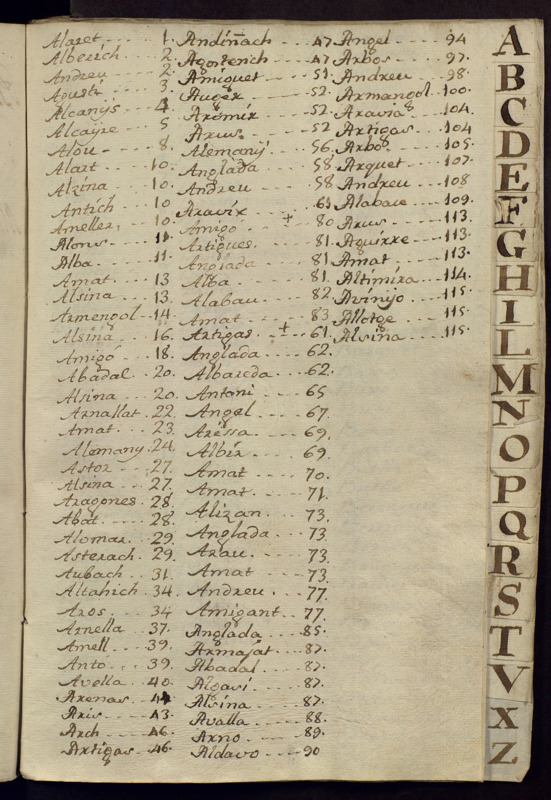 Alaret 1.
Alberich 2
Andreu 2
Agusti 3
Alcanÿs 4
Alcayre 5
Alou 8.
Alart 10.
Alzina 10.
Antich 10
Ameller 10
Alons 11.
Alba 11.
Amat 13
Alsina 13
Armengol 14
Alsina 16.
Amigó 18.
Abadal 20.
Alsina 20.
Arnallat 22.
Amat 23.
Alemany 24
Astor 27.
Alsina 27.
Aragones 28.
Abat 28.
Alomar 29
Asterach 29.
Aubach 31.
Altahich 34.
Aros 34
Arnella 37.
Amell 39.
Anto 39.
Avolla 40.
Arenas 41
Aris 43.
Arch 46.
Artigas 46.
Andiñach 47
Agorench 47
Amiguet 51.
Auger 52.
Aromir 52.
Arus 52
Alemanÿ 56
Anglada 58
Andreu 58
Aravix 61
Amigo + 80
Artigues 81.
Anglada 81
Alba 81.
Alabau 82
Amat 83
Artigas + 61.
Anglada 62.
Albareda 62.
Antoni 65
Angel 67.
Aressa 69.
Albir 69.
Amat 70.
Amat 71.
Alizan 73.
Anglada 73
Arau 73.
Amat 73.
Andreu 77.
Amigant 77.
Anglada 85.
Armajat 87.
Abadal 87.
Algavi 87.
Alsina 87.
Avalla 88.
Arno 89.
Aldavo 90
Angel 94
Arbos 97.
Andreu 98.
Armangol 100.
Aravia 104.
Artigas 104
Arbos 105.
Arquet 107.
Andreu 108
Alabau 109.
Arus 113.
Aguirre 113.
Amat 113.
Altimira 114.
Avinyo 115.
Allotge 115.
Alsina 115.
A
B
C
D
E
F
G
H
I
L
M
N
O
P
Q
R
S
T
V
X
Z